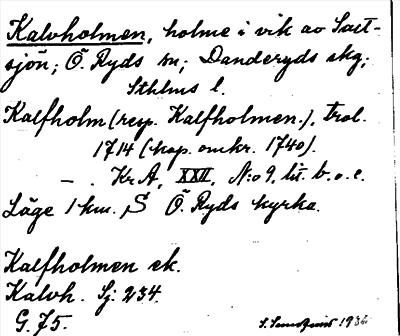 Kalvholmen, holme i vik av Salt-
sjön; Ö. Ryds sn; Danderyds skg;
Sthlms l.
Kalfholm (resp. Kalfholmen), trol.
1714 (kop. omkr. 1740).
— . Kr.A, XXII, N:o 9, lit. b. o. c.
Läge 1 km. S Ö. Ryds kyrka.
Kalfholmen ek.
Kalvh. Sj: 234.
G. 75.
S. 1936